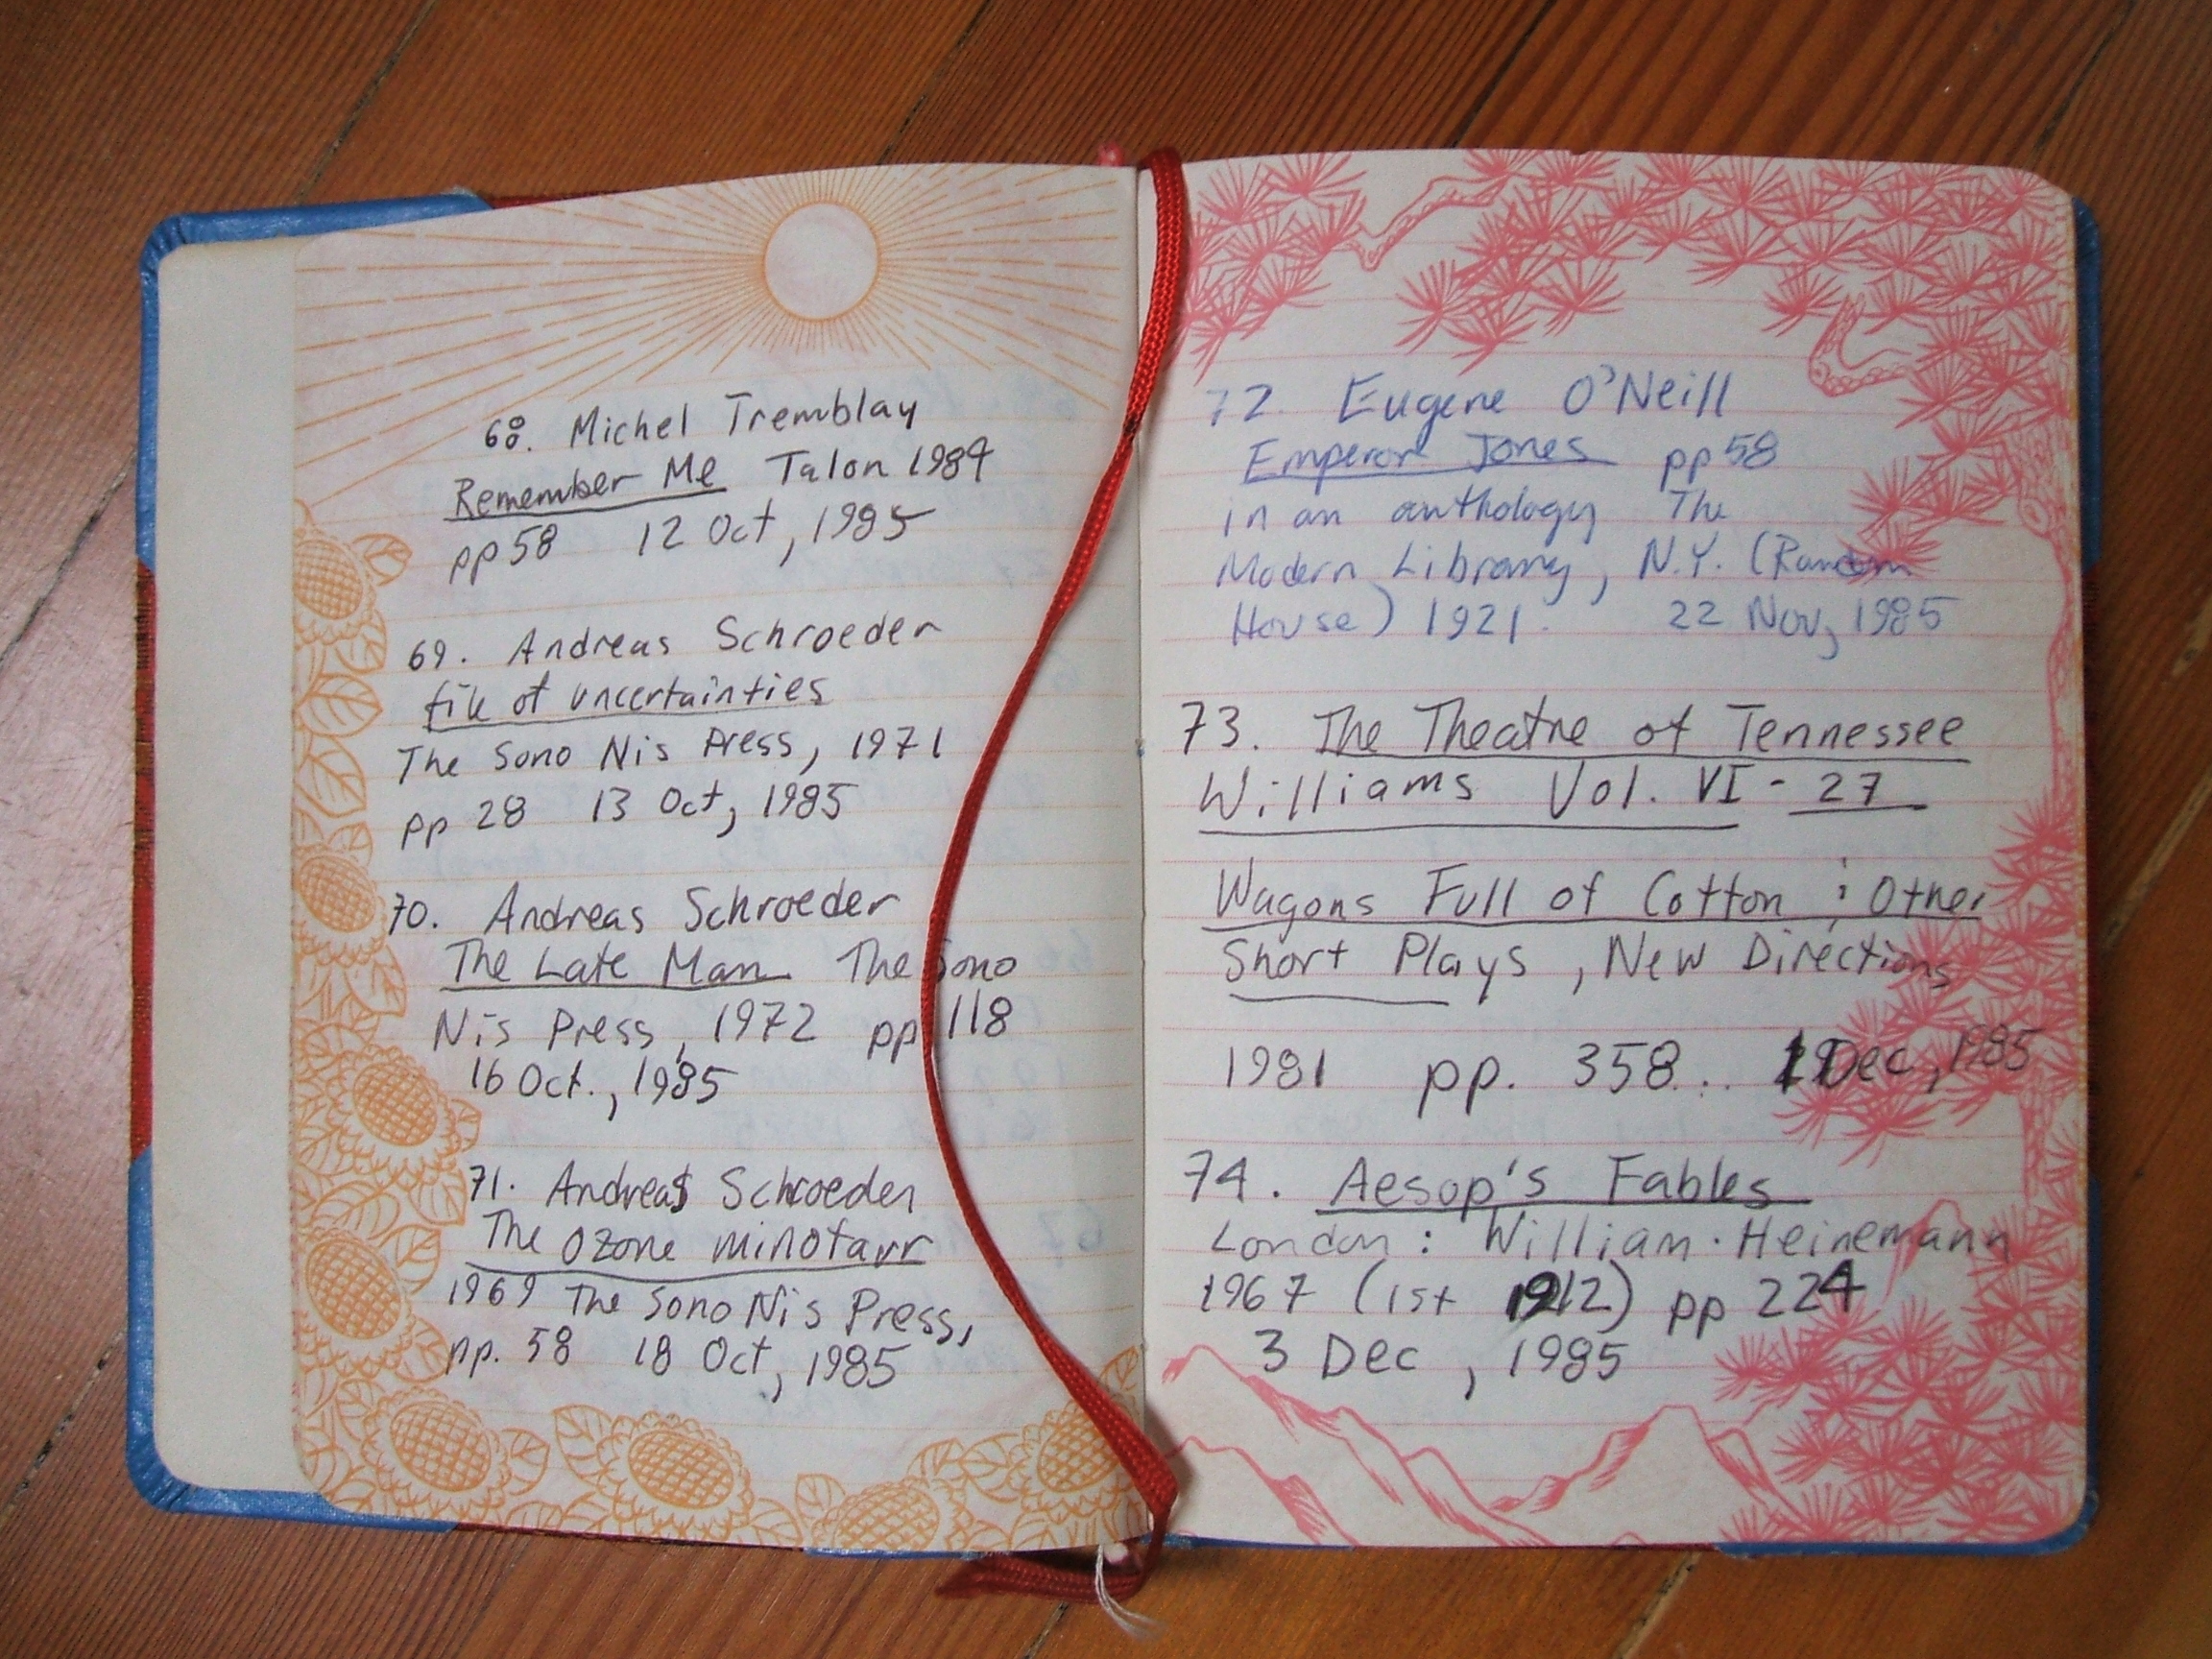 68. Michel Tremblay
Remember Me Talon 1984
pp 58 12 Oct, 1985
69. Andreas Schroeder
file of uncertainties
The Sono Nis Press, 1971
pp 28 13 Oct, 1985
70. Andreas Schroeder
The Late Man The Sono
Nis Press, 1972 pp 118
16 Oct., 1985
71. Andreas Schroeder
The Ozone minotaur
1969 The Sono Nis Press,
pp. 58 18 Oct, 1985
72. Eugene O'Neill
Emperor Jones pp 58
in an anthology The
Modern Library, N.Y. (Random
House) 1921. 22 Nov, 1985
73. The Theatre of Tennessee
Williams Vol. VI - 27
Wagons Full of Cotton ; Other
Short Plays, New Directions
1981 pp. 358 .. Dec, 1985
74. Aesop's Fables
London: William Heinemann
1967 (1st 1912) pp 224
3 Dec, 1985